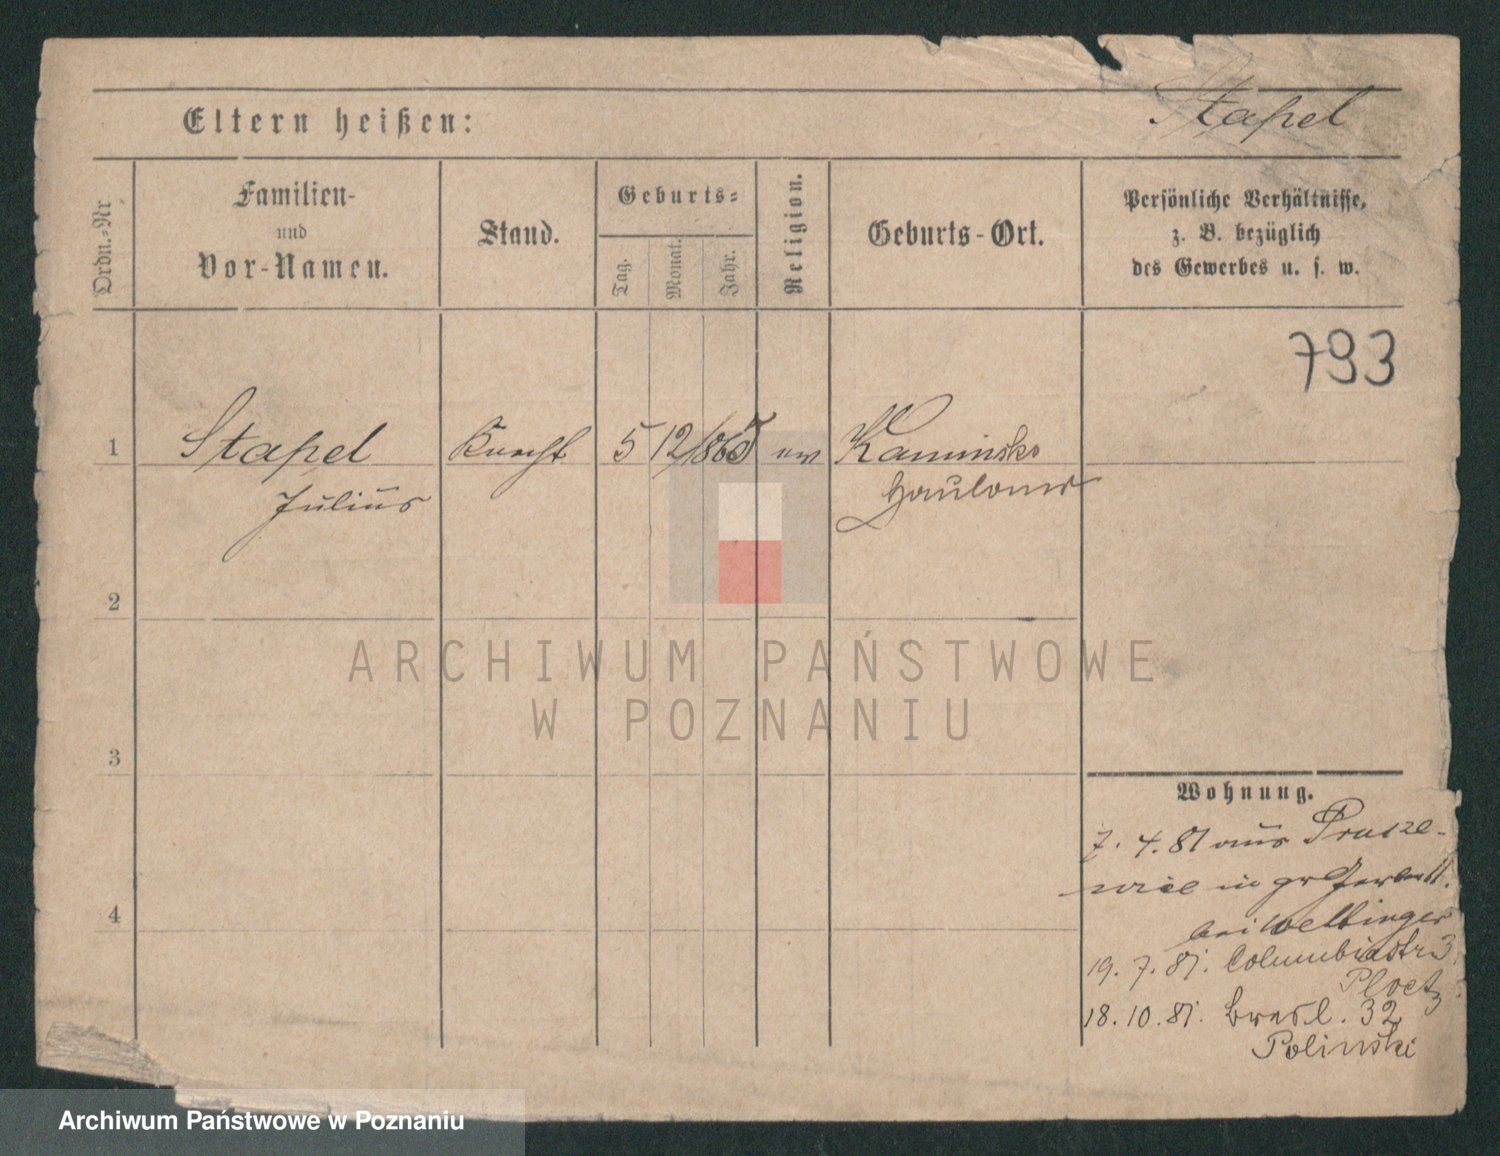 Eltern heißen:
Stapel
Ordn.-Nr
Familien-
und
Vor-Namen.
Stand.
Geburts-
Tag.
Monat.
Jahr.
Religion.
Geburts-Ort.
Persönliche Verhältnisse,
z. B. bezüglich
des Gewerbes u. s. w.
793
1 Stapel Knecht 5 12/1865 ev Kaminsko
Julius Hauland
2
ARCHIWUM PAŃSTWOWE
W POZNANIU
3
Wohnung.
7. 4. 81 aus Prusze-
wiec in gr
4
bei
19. 7. 81. Columbiastr 3
Ploetz
18. 10. 81. Bresl. 32
Polinski
Archiwum Państwowe w Poznaniu